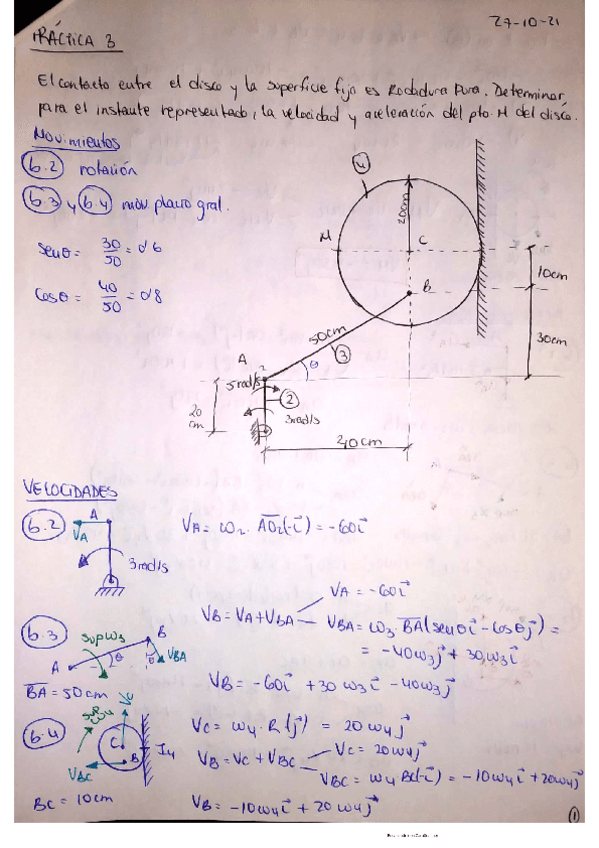 27-10-21
PRÁCTICA 3
El contacto entre el disco y la superficie fija es Rodadura Pura. Determinar,
para el instante representado, la velocidad y aceleración del pto. M del disco.
Movimientos
b.2 rotación
b.3 y b.4 mov. plano gral.
senθ = 30/50 = 0'6
cosθ = 40/50 = 0'8
4
20cm
M
C
B
10cm
30cm
50cm
3
θ
A
5 rad/s²
2
3rad/s
20 cm
40cm
VELOCIDADES
b.2
A
VA
3rad/s
VA = ω2 · AO2(-i) = -60i
b.3
sup ω3
B
A
θ
θ
VBA
BA = 50cm
VB = VA + VBA
VA = -60i
VBA = ω3 · BA(senθi - cosθj) =
= -40ω3j + 30ω3i
VB = -60i + 30ω3i - 40ω3j
b.4
sup ω4
VC
C
B
I4
VBC
BC = 10cm
VC = ω4 · R(j) = 20ω4j
VB = VC + VBC
VC = 20ω4j
VBC = ω4 BC(-i) = -10ω4i + 20ω4j
VB = -10ω4i + 20ω4j
1